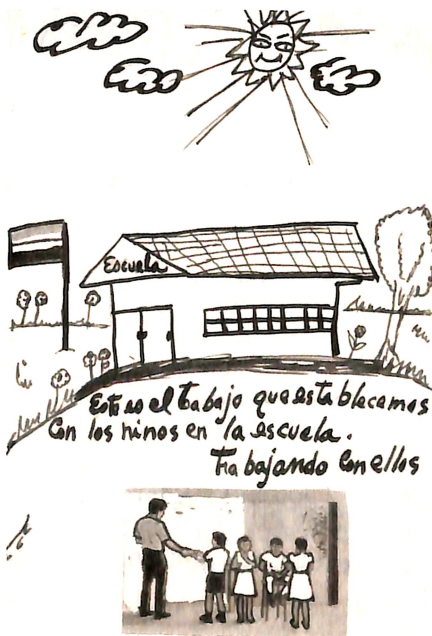 Escuela
Este es el trabajo que establecemos
Con los ninos en la escuela.
Trabajando con ellos